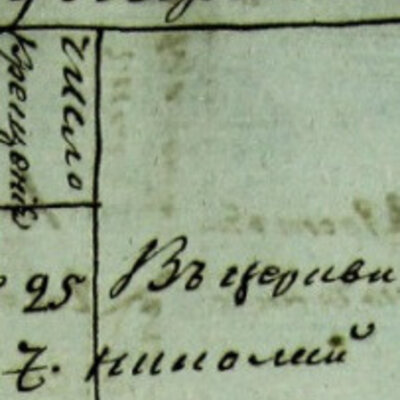 Число
крещенія
25 Въ церкви
7. николай